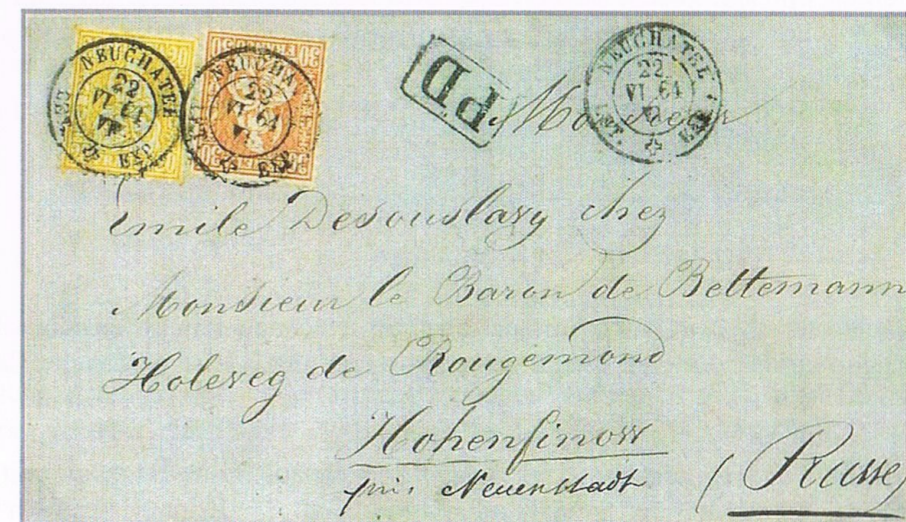 NEUCHATEL
22
VI 64
EXP.
NEUCHA
22
VI 64
EXP
PD
NEUCHATEL
22
VI 64
EXP.
Monsieur
Emile Dessouslavy chez
Monsieur le Baron de Bettemann
Holeveg de Rougemond
Hohenfinow
près Neuenstadt (Russe)